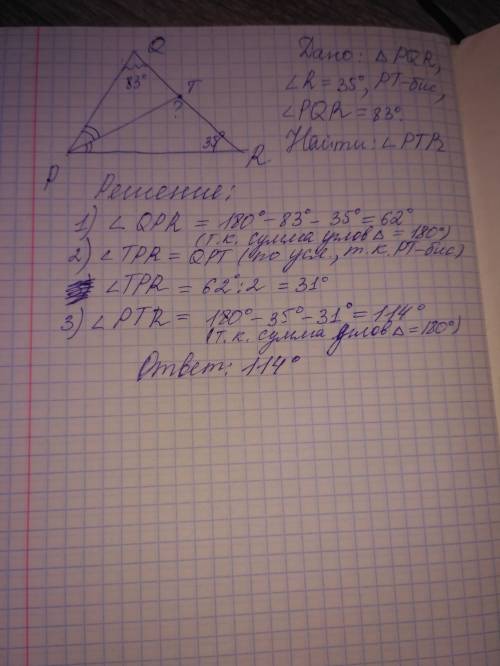 Q
83°
T
?
35°
P
R
Дано: △PQR,
∠R = 35°, PT-бис,
∠PQR = 83°.
Найти: ∠PTR
Решение:
1) ∠QPR = 180° - 83° - 35° = 62°
(т.к. сумма углов △ = 180°)
2) ∠TPR = QPT (по усл., т.к. PT-бис)
∠TPR = 62° : 2 = 31°
3) ∠PTR = 180° - 35° - 31° = 114°
(т.к. сумма углов △ = 180°)
Ответ: 114°